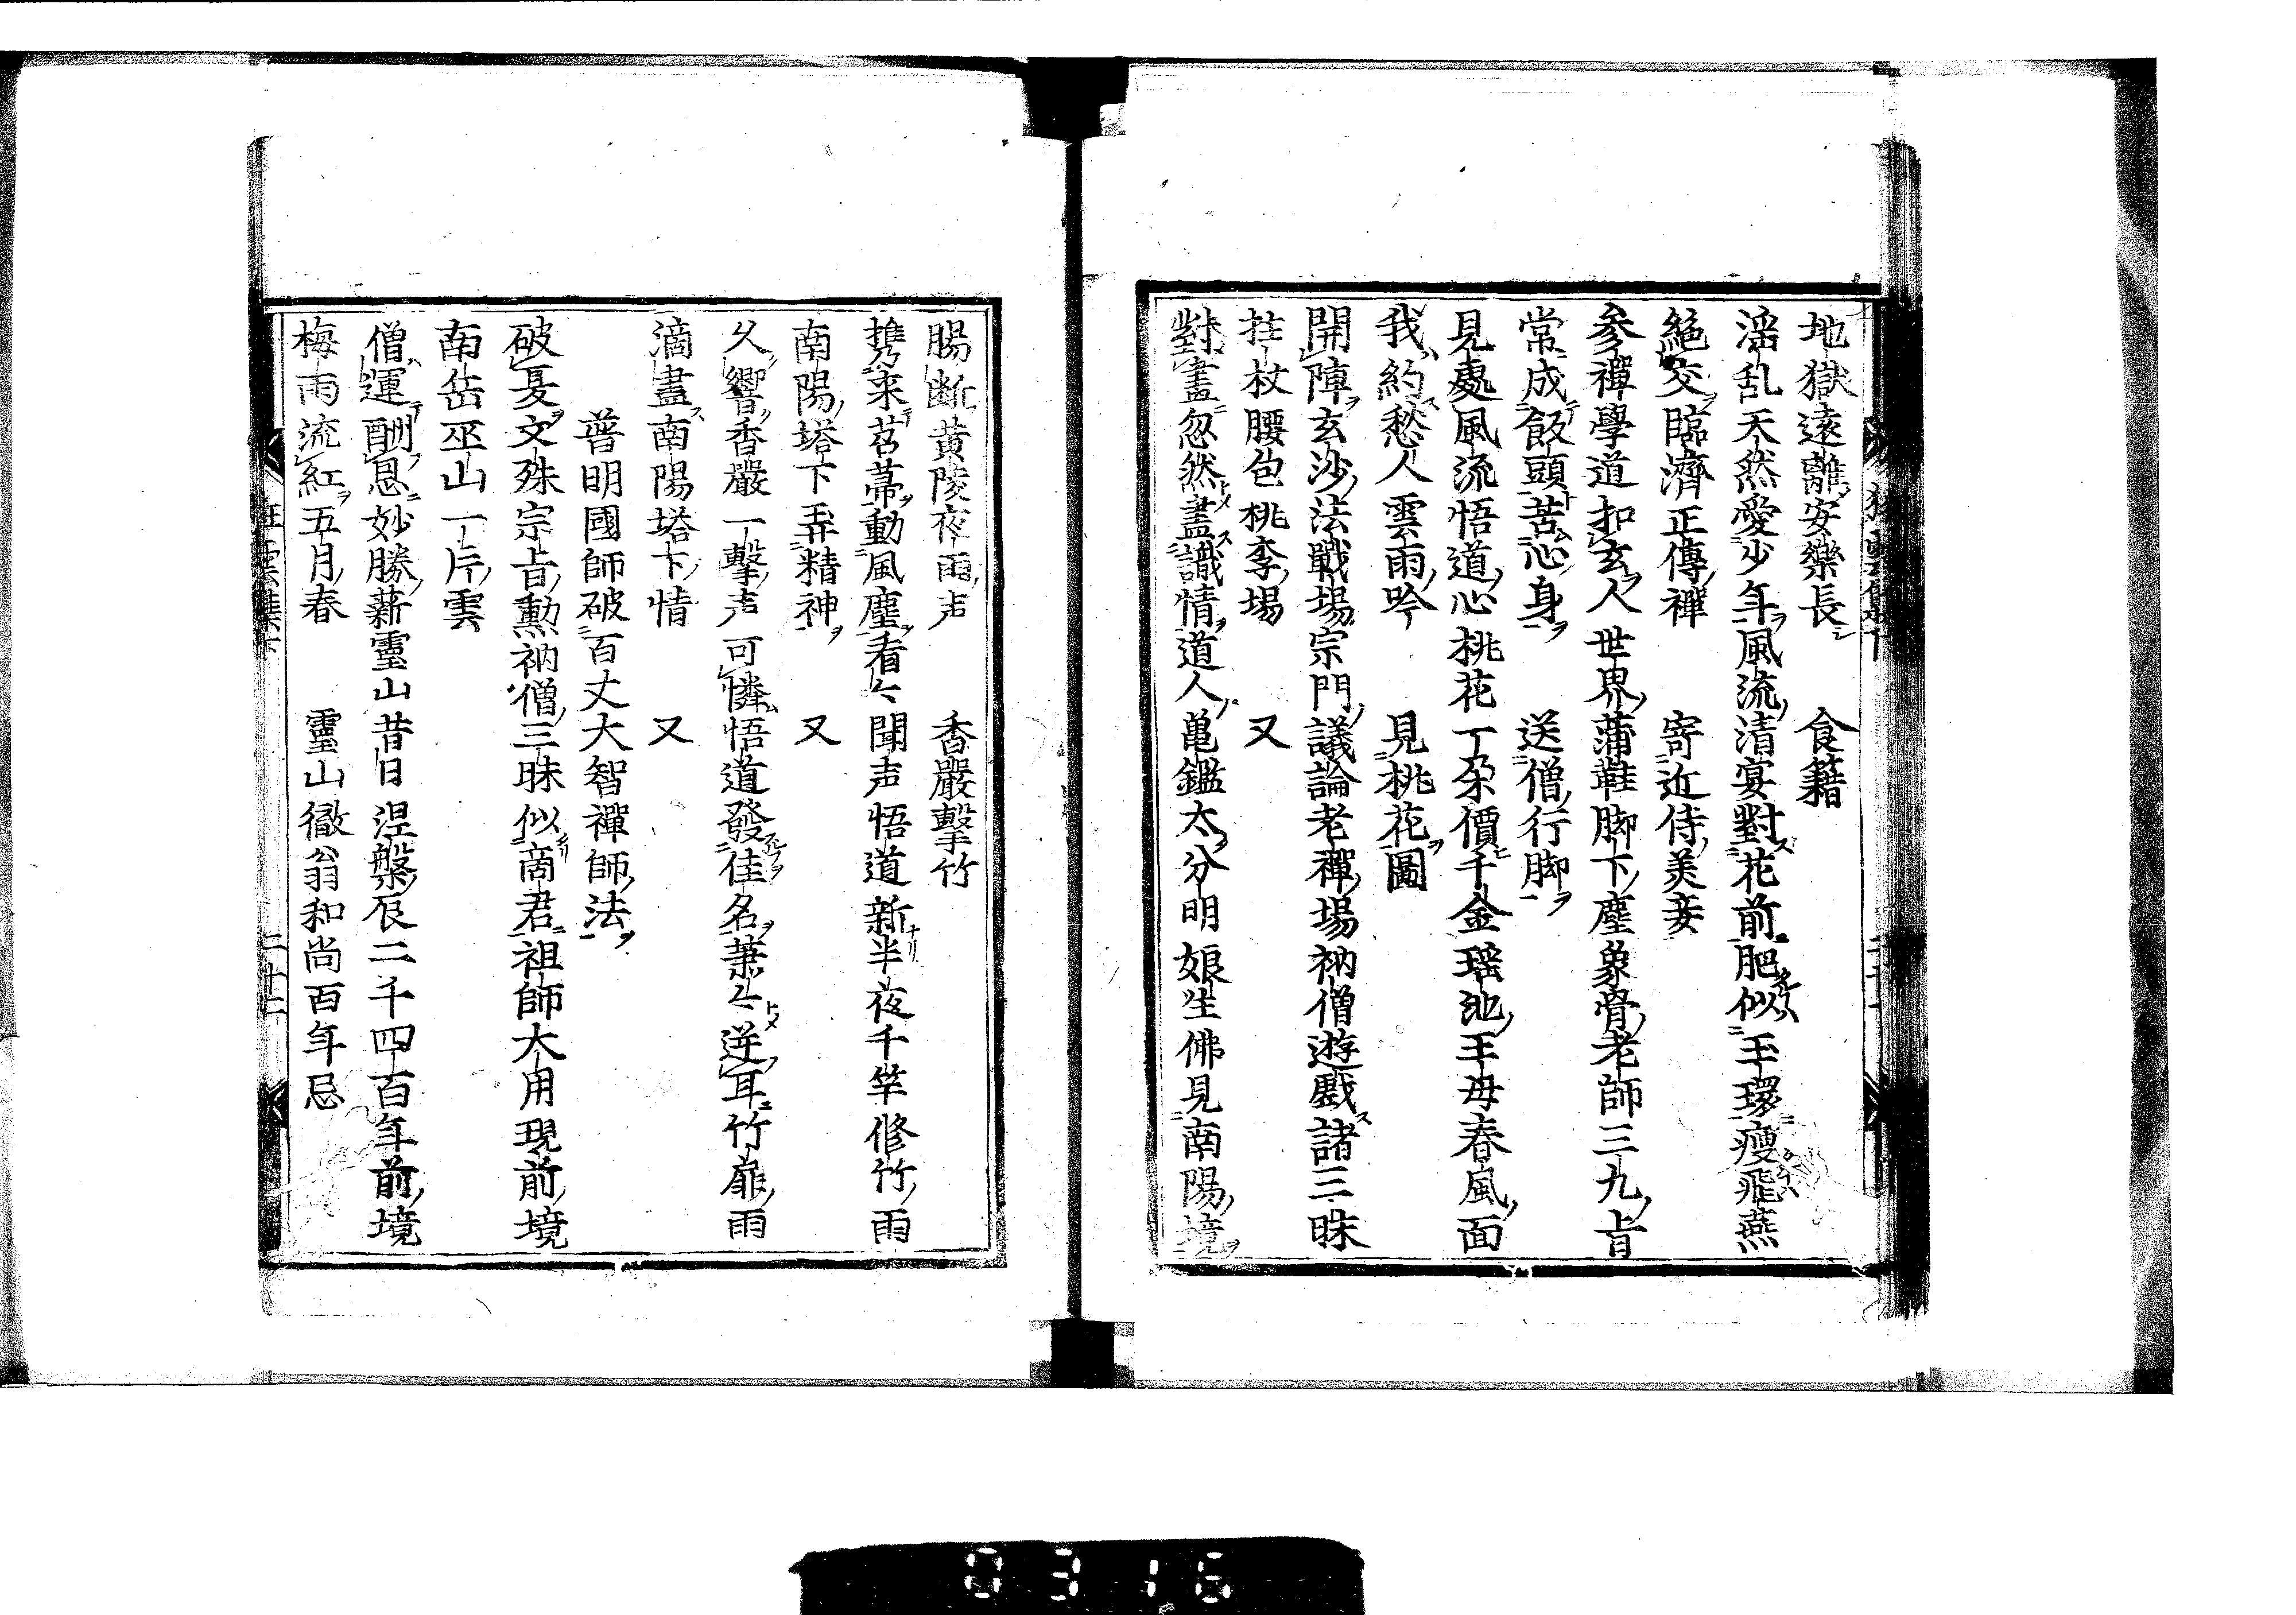 地獄遠離安樂長 食籍
淫乱天然愛少年風流清宴對花前肥似玉環瘦飛燕
絕交臨濟正傳禪 寄近侍美妾
參禪學道扣玄人世界蒲鞋脚下塵象骨老師三九旨
常成飯頭苦心身 送僧行脚
見處風流悟道心桃花一朶價千金瑶池王母春風面
我約愁人雲雨吟 見桃花圖
開陣玄沙法戰場宗門議論老禪場衲僧遊戲諸三昧
拄杖腰包桃李場 又
對畫忽然盡識情道人亀鑑太分明娘生佛見南陽境
腸断黃陵夜雨声 香嚴擊竹
携來苕菷動風塵看々聞声悟道新半夜千竿修竹雨
南陽塔下弄精神 又
久響香嚴一擊声可憐悟道發佳名䔥々逆耳竹扉雨
滴盡南陽塔下情 又
普明國師破百丈大智禪師法
破戛文殊宗旨勳衲僧三昧似商君祖師大用現前境
南岳巫山一片雲
僧運酬恩妙勝薪靈山昔日涅槃辰二千四百年前境
梅雨流紅五月春 靈山徹翁和尚百年忌
狂雲集下 二十二
0316